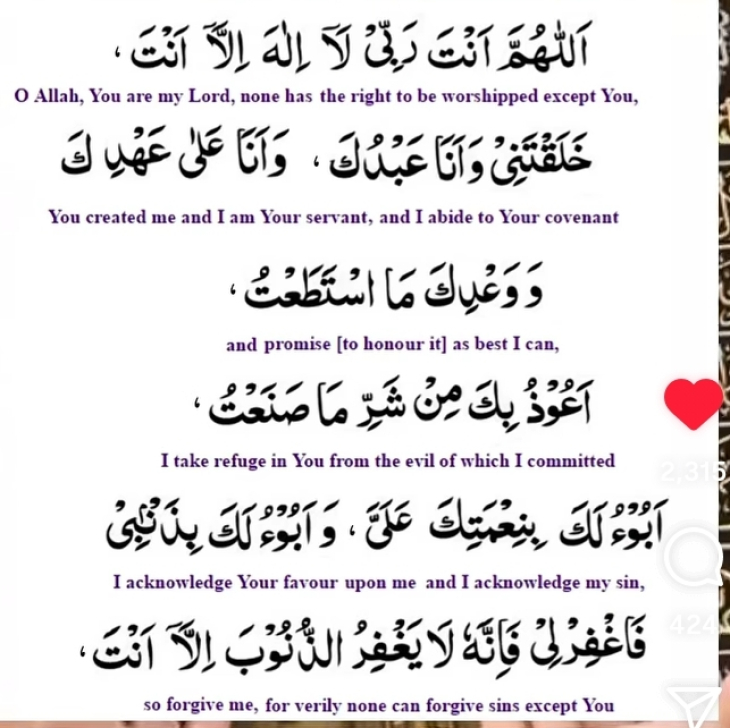 اَللّٰهُمَّ اَنْتَ رَبِّیْ لَآ اِلٰهَ اِلَّآ اَنْتَ ،
O Allah, You are my Lord, none has the right to be worshipped except You,
خَلَقْتَنِیْ وَاَنَا عَبْدُكَ ، وَاَنَا عَلٰی عَهْدِكَ
You created me and I am Your servant, and I abide to Your covenant
وَ وَعْدِكَ مَا اسْتَطَعْتُ ،
and promise [to honour it] as best I can,
اَعُوْذُ بِكَ مِنْ شَرِّ مَا صَنَعْتُ ،
I take refuge in You from the evil of which I committed
اَبُوْءُ لَكَ بِنِعْمَتِكَ عَلَیَّ ، وَ اَبُوْءُ لَكَ بِذَنْۢبِیْ
I acknowledge Your favour upon me and I acknowledge my sin,
فَاغْفِرْلِیْ فَاِنَّهٗ لَا یَغْفِرُ الذُّنُوْبَ اِلَّآ اَنْتَ ،
so forgive me, for verily none can forgive sins except You
2,315
424